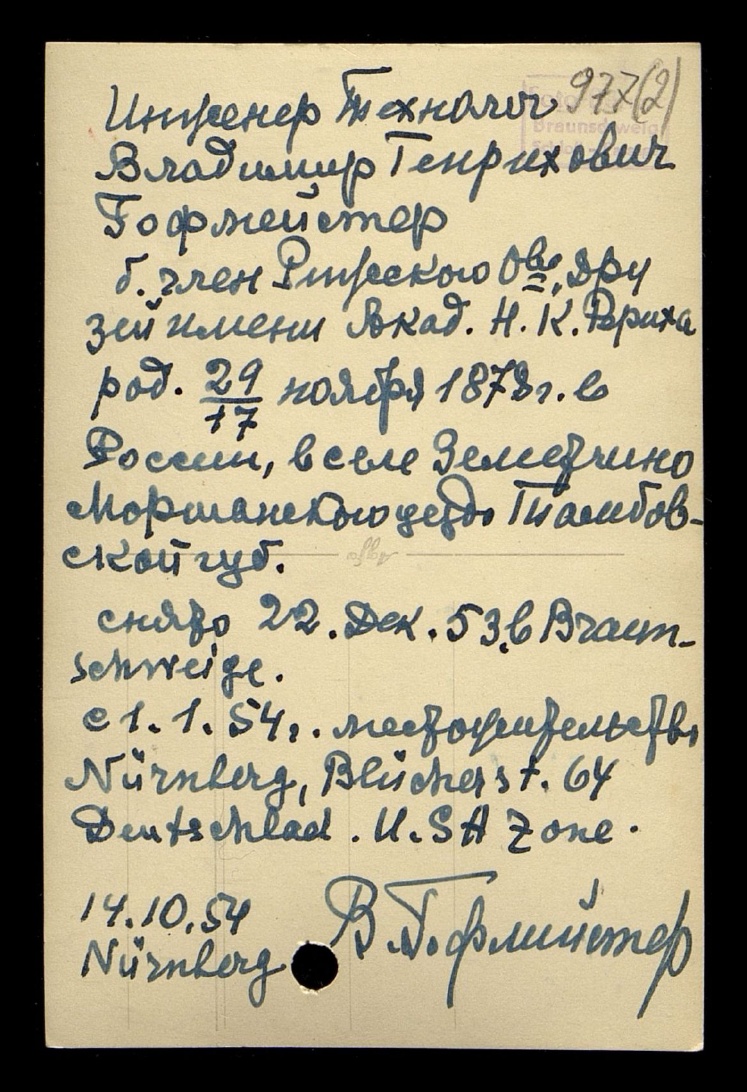 977(2)
Инженер Технолог
Владимир Генрихович
Гофмейстер
б. член Рижского О-ва, Дру
зей имени Акад. Н. К. Рериха
род. 29/17 ноября 1878 г. в
России, в селе Земетчино
Моршанского уезда Тамбов-
ской губ.
снято 22. Дек. 53. в Braun-
schweige.
с 1. 1. 54 г. местожительство
Nürnberg, Blücherst. 64
Deutschlad. U.SA Zone.
14.10.54
Nürnberg
В. Гофмейстер